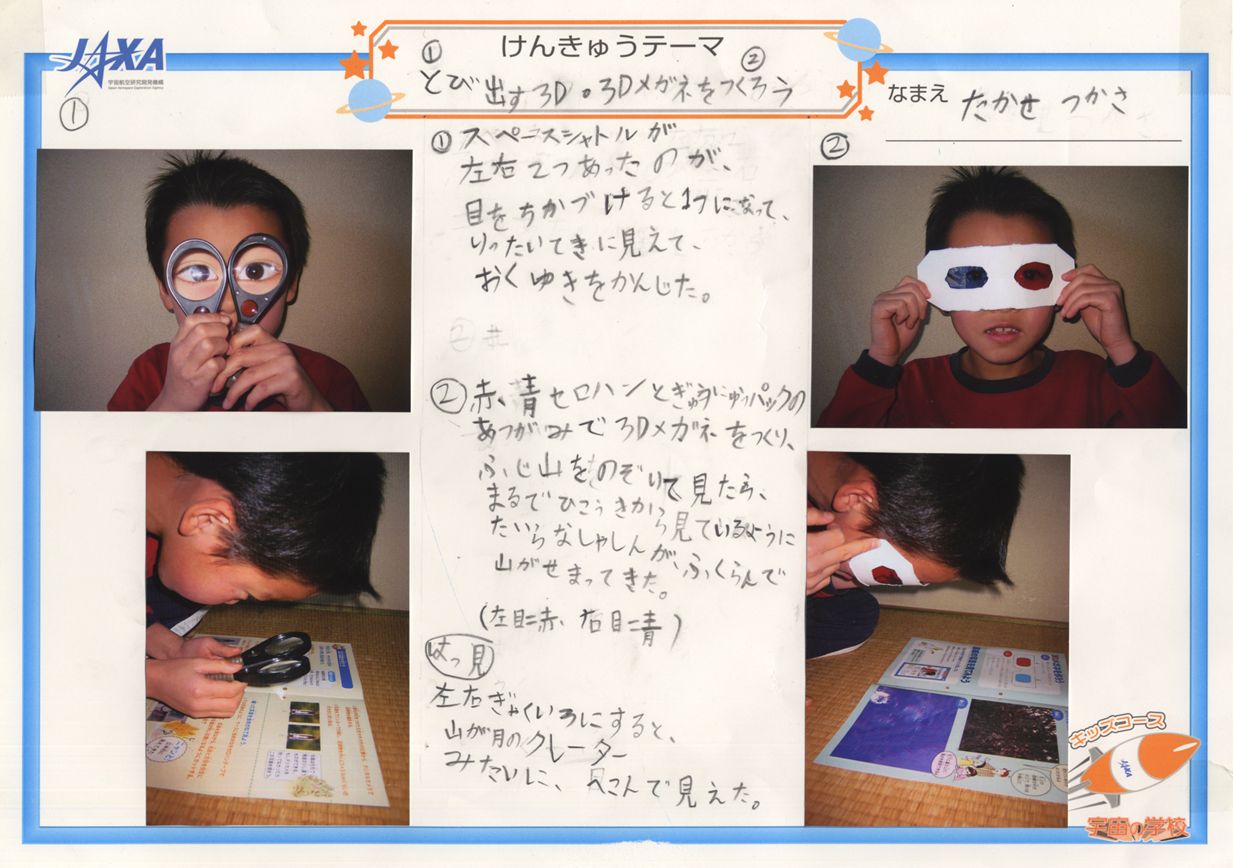 JAXA
宇宙航空研究開発機構
Japan Aerospace Exploration Agency
けんきゅうテーマ
① とび出す3D。② 3Dメガネをつくろう
なまえ たかせ つかさ
①
②
①スペースシャトルが
左右2つあったのが、
目をちかづけると1つになって、
りったいてきに見えて、
おくゆきをかんじた。
②赤、青セロハンとぎゅうにゅうパックの
あつがみで3Dメガネをつくり、
ふじ山をのぞいて見たら、
まるでひこうきから見ているように
たいらなしゃしんが、ふくらんで
山がせまってきた。
(左目=赤、右目=青)
はっ見
左右ぎゃくいろにすると、
山が月のクレーター
みたいに、へこんで見えた。
キッズコース
JAXA
宇宙の学校